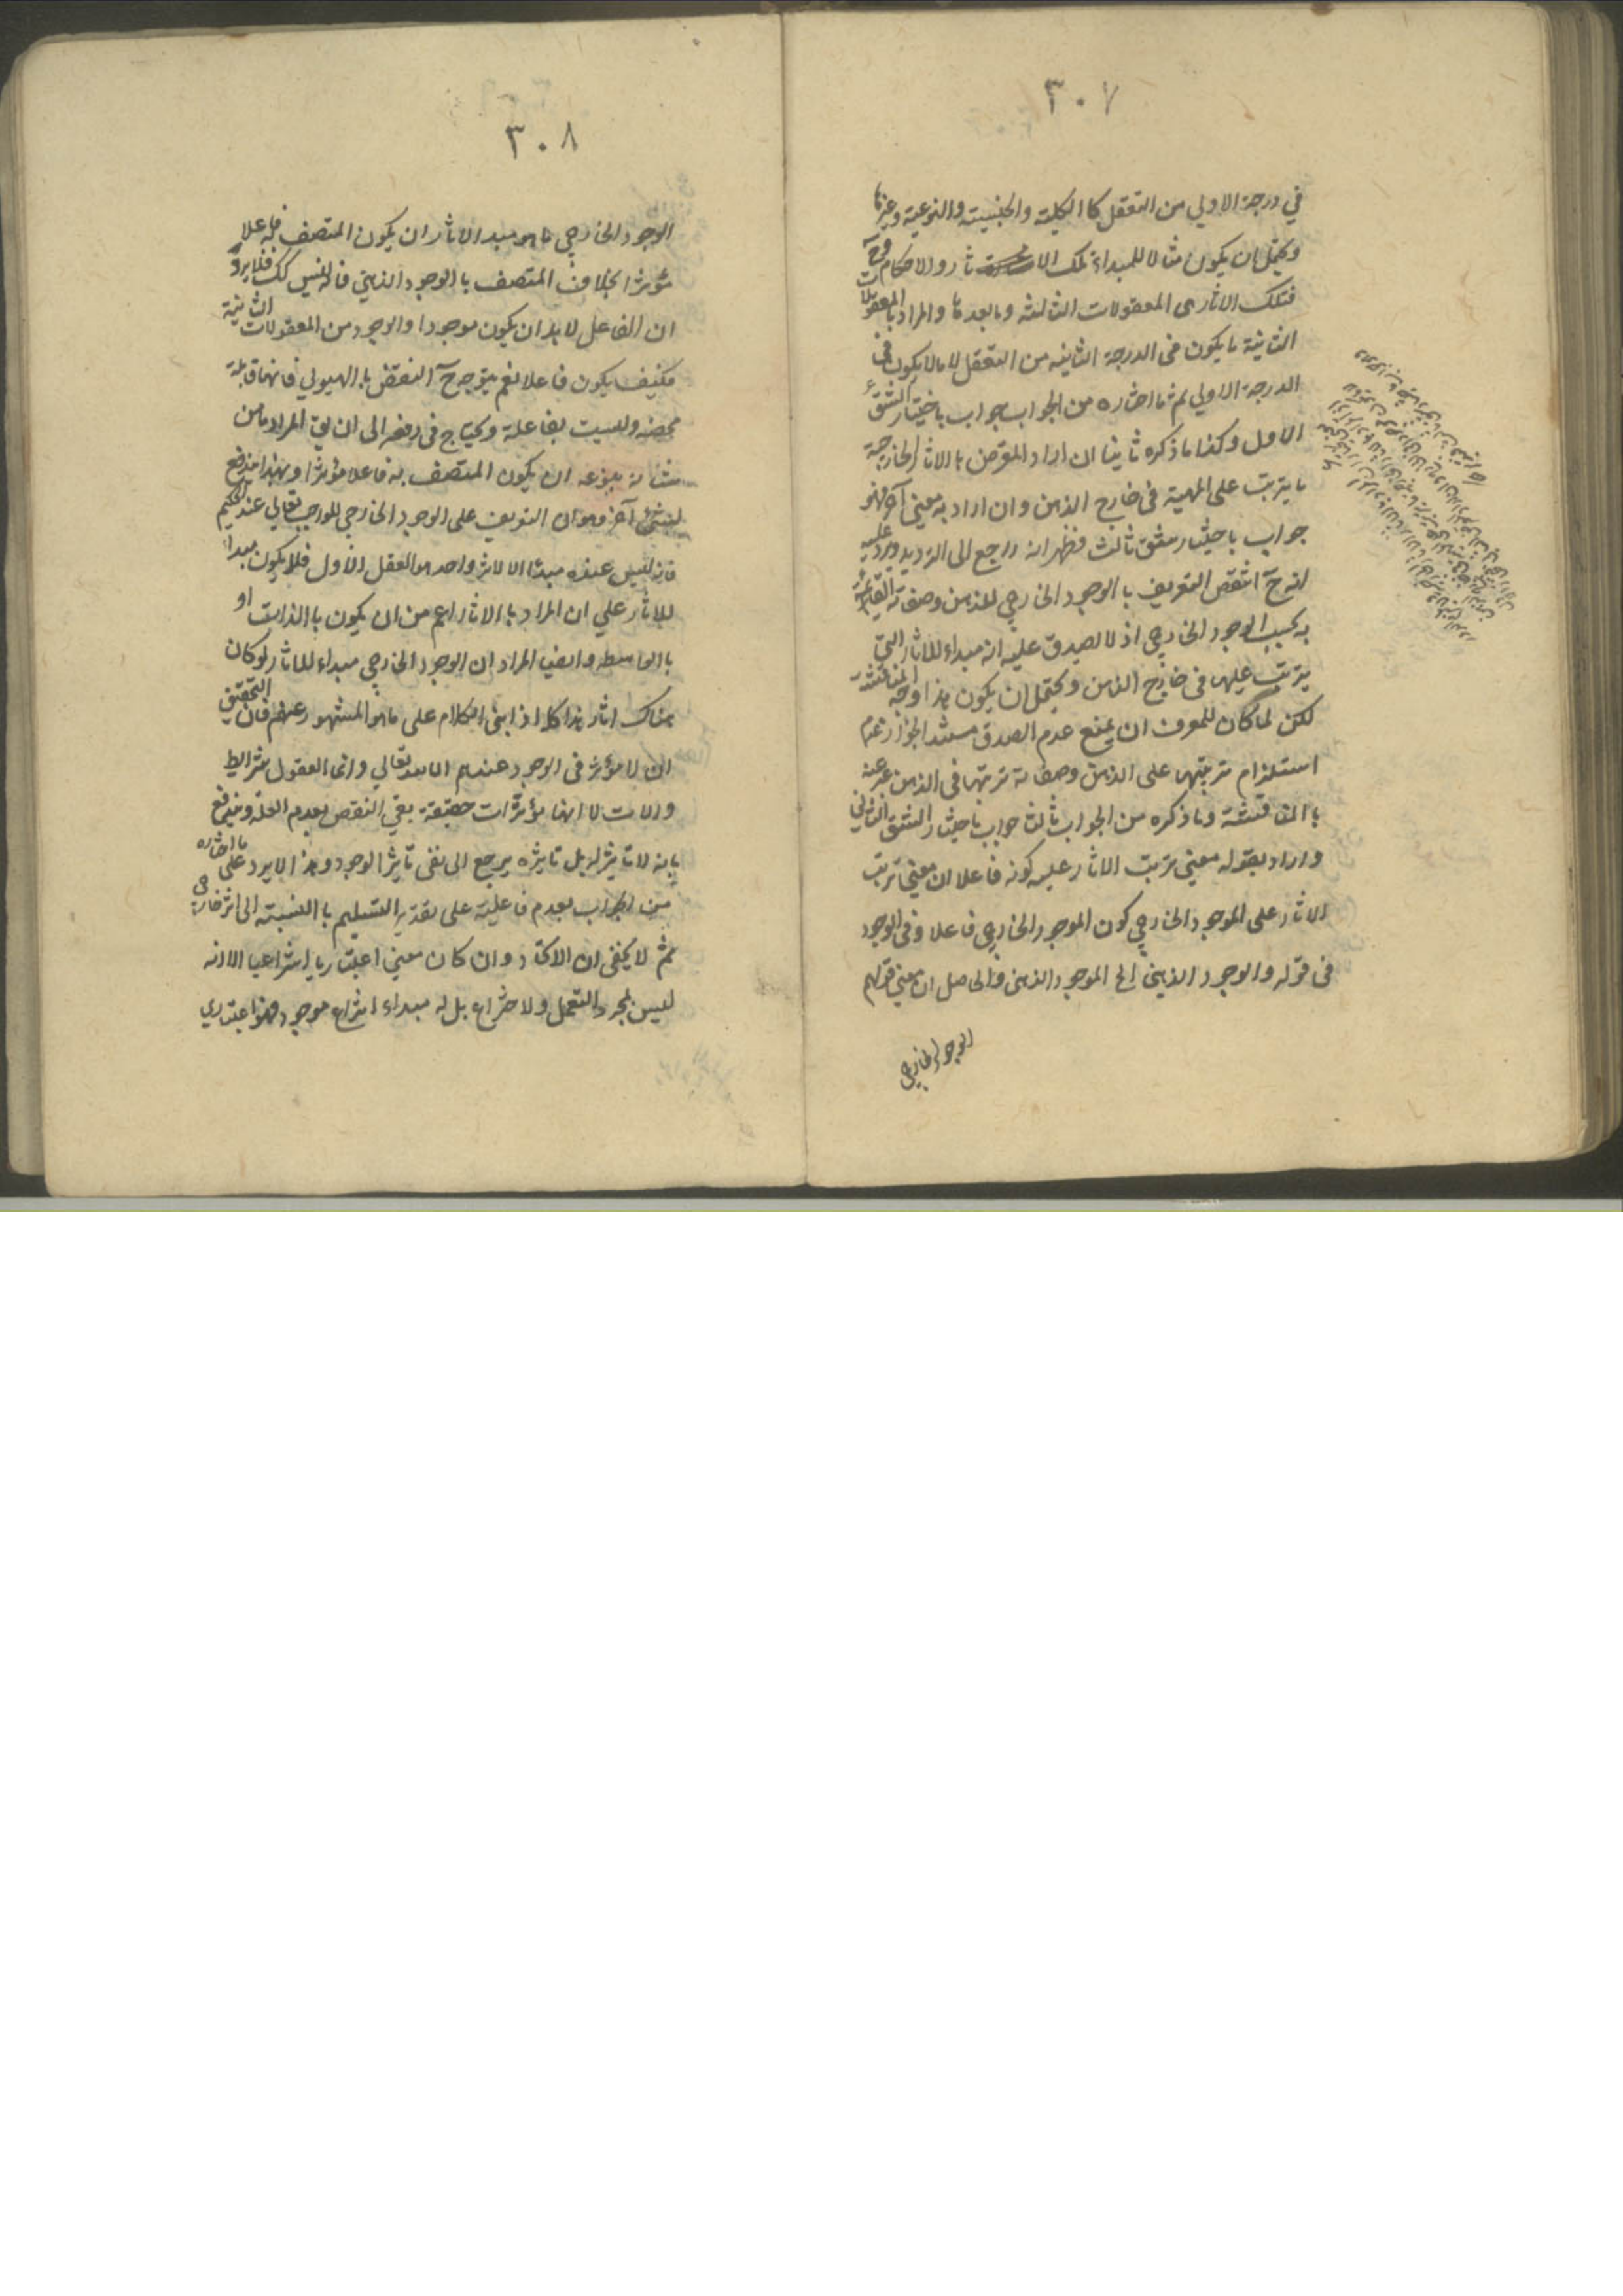 ٣٠٧
في درجة الاولي من التعقل كا الكلية والجنسيته والنوعية وغيرها
ويحتمل ان يكون مثالا للمبداء تلك الا ثار والاحكام وح
فتلك الاثار هى المعقولات الثالثه وما بعدها والمراد بالمعقولات
الثانية ما يكون فى الدرجة الثانيه من التعقل لا مالا يكون فى
الدرجة الاولي ثم ما اختاره من الجواب جواب باختيار الشق
الاول وكذا ما ذكره ثانيا ان اراد المعرض بالاثار الخارجية
ما يترتب على المهية فى خارج الذهن وان اراد به معنى آخر فهو
جواب باختيار شق ثالث فظهر انه راجع الى الترديد ويرد عليه
انه ح انتقض التعريف با الوجود الخارجي للذهن وصفاته القائمة
به بحسب الوجود الخارجي اذ لا يصدق عليه انه مبداء للاثار التي
يترتب عليها فى خارج الذهن ويحتمل ان يكون هذا وجه المناقشة
لكن لما كان للمعرف ان يمنع عدم الصدق مستند الجواز عدم
استلزام ترتبها على الذهن وصفاته ترتبها فى الذهن عبر عنه
با المناقشة وما ذكره من الجواب ثالثا جواب باختيار الشق الثاني
واراد بقوله معنى ترتب الاثار عليه كونه فاعلا ان معنى ترتب
الاثار على الموجود الخارجي كون الموجود الخارجي فاعلا وفى الوجود
فى قوله والوجود الذهني الخ الموجود الذهنى والحاصل ان معنى قولهم
الوجود الخارجي
٣٠٨
الوجود الخارجي ما هو مبدء الاثار ان يكون المتصف به فاعلا
مؤثرا بخلاف المتصف با الوجود الذهني فانه ليس كك فلا يرد
ان الفاعل لا بد ان يكون موجودا والوجود من المعقولات الثانية
فكيف يكون فاعلا نعم يتوجه ح النقض با الهيولي فانها قابلة
محضه وليست بفاعلة ويحتاج فى دفعه الى ان يق المراد ما من
شانه بنوعه ان يكون المتصف به فاعلا مؤثرا وبهذا يندفع
شئ آخر وهو ان التعريف على الوجود الخارجي للواجب تعالي عند الحكيم
فانه ليس عنده مبدئا الا لاثر واحد هو العقل الاول فلا يكون مبداء
للاثار علي ان المراد با الاثار اعم من ان يكون با الذات او
با الواسطه وايضا المراد ان الوجود الخارجي مبداء للاثار لو كان
هناك اثار هذا كله اذا بنى الكلام على ما هو المشهور عنهم فان التحقيق
ان لا مؤثر فى الوجود عندهم الا الله تعالي وانما العقول شرائط
والات لا انها مؤثرات حقيقة بقي النقض بعدم العلة ويندفع
بانه لا تاثير له بل تاثيره يرجع الى نفى تاثير الوجود وهذا لا يرد على ما اختاره
من الجواب بعدم فاعلية على تقدير التسليم با النسبته الى اثر خارجى
ثم لا يخفى ان الاتحاد وان كان معنى اعتباريا انتزاعيا الا انه
ليس بمجرد التعمل والاختراع بل له مبداء انتزاع موجود فهو اعتباري